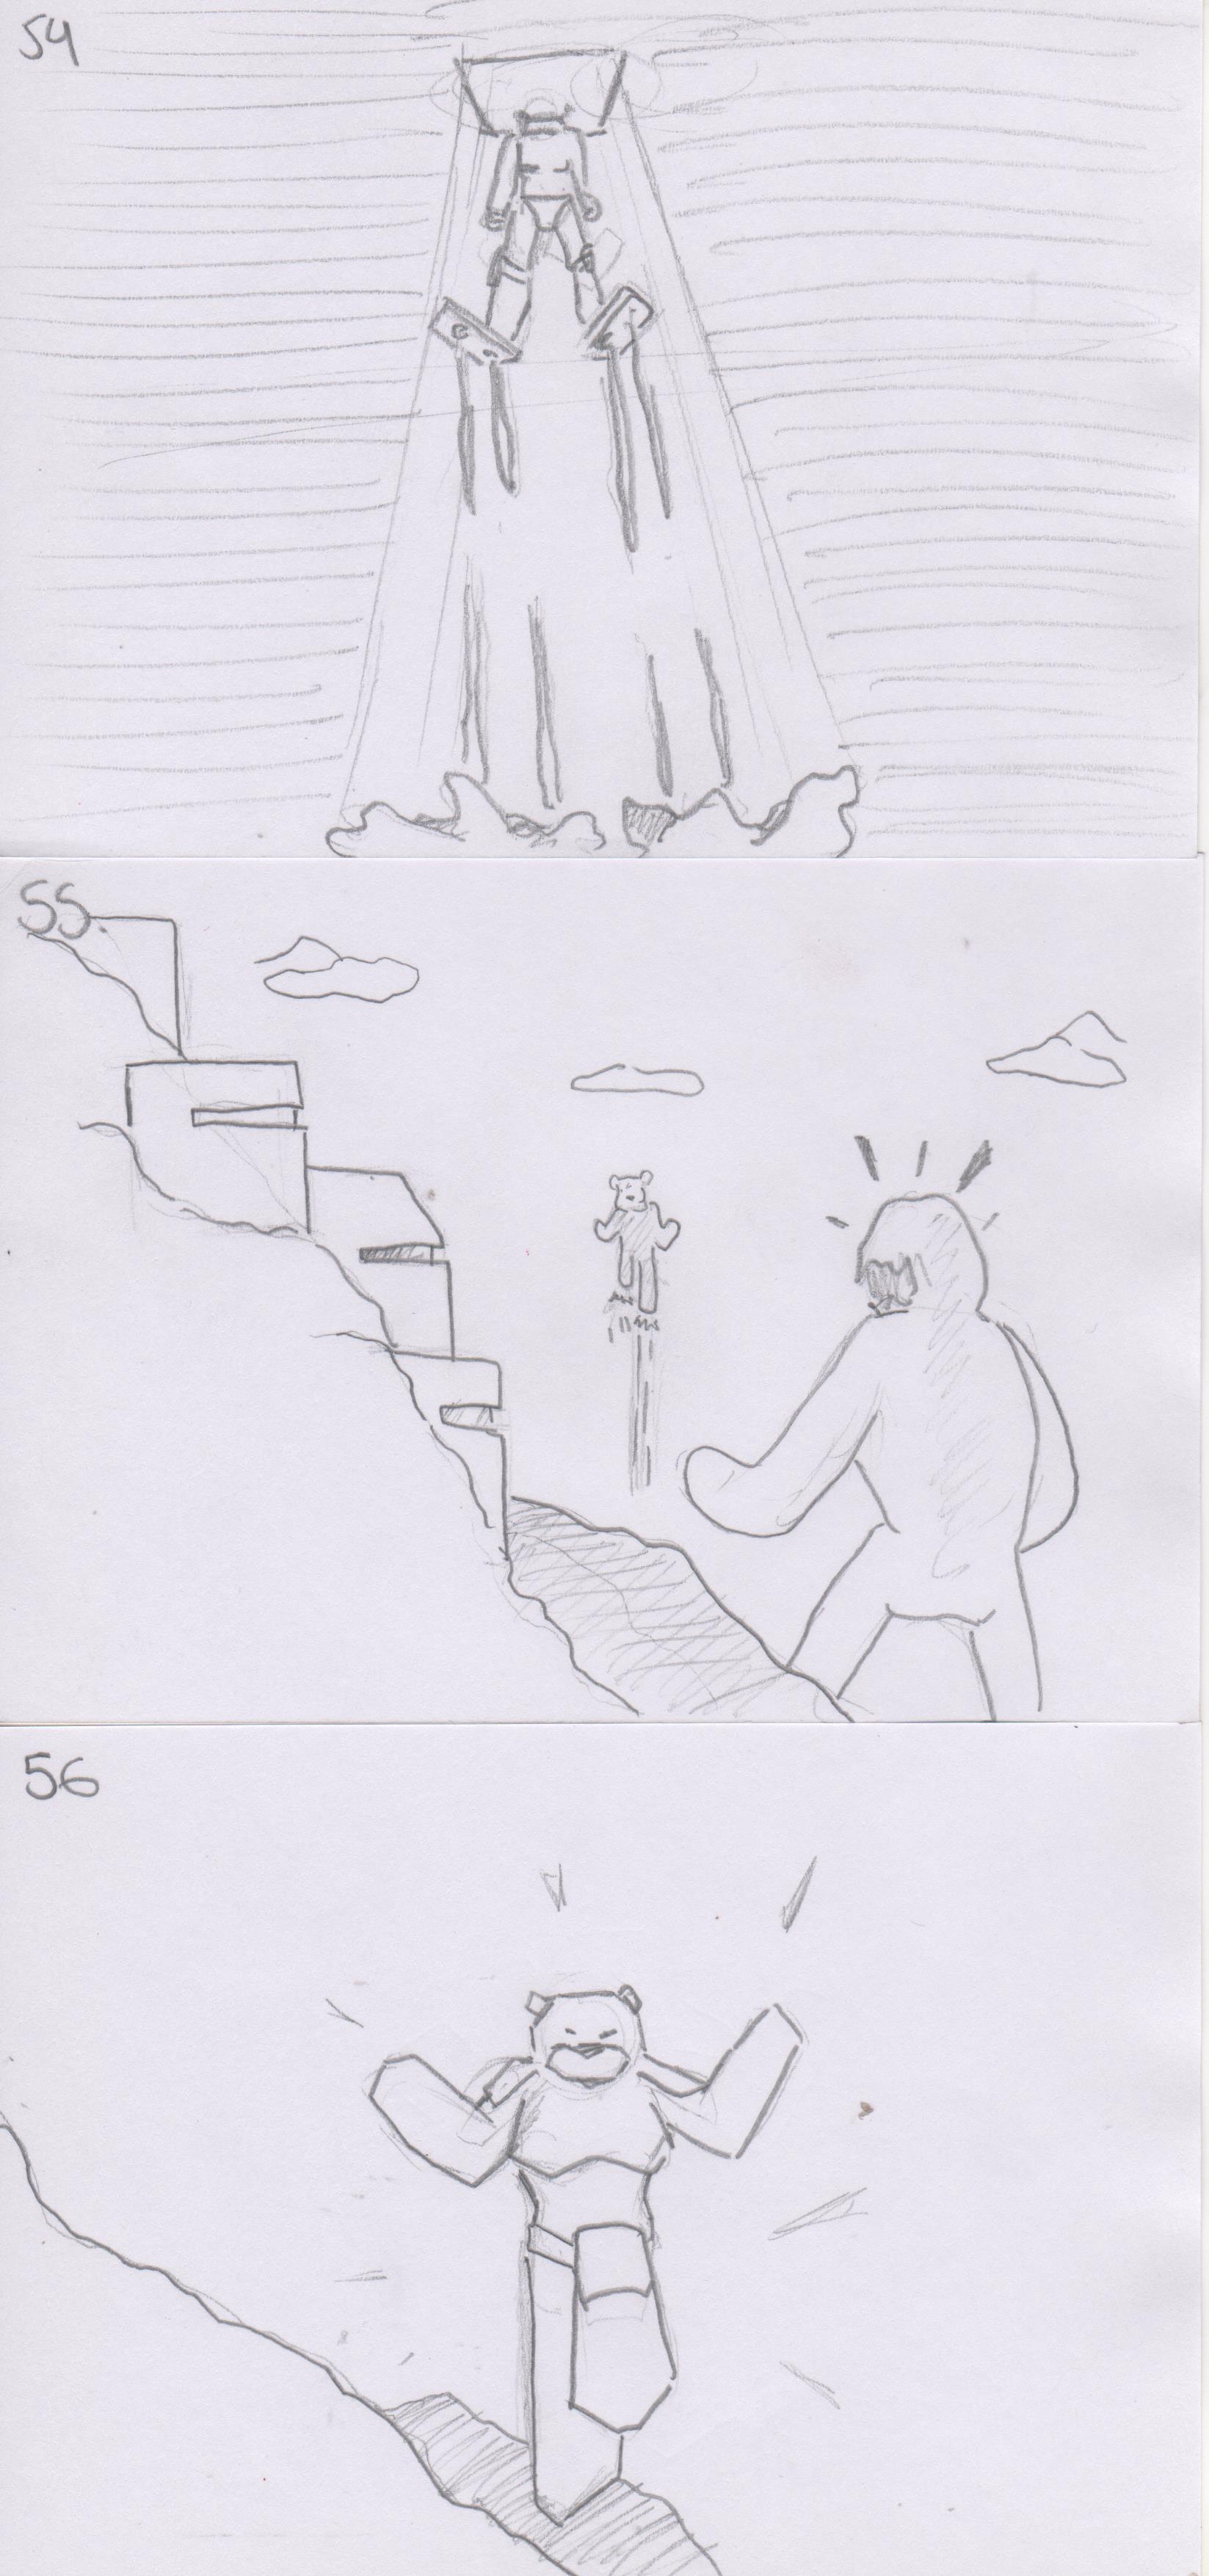 54
55.
56